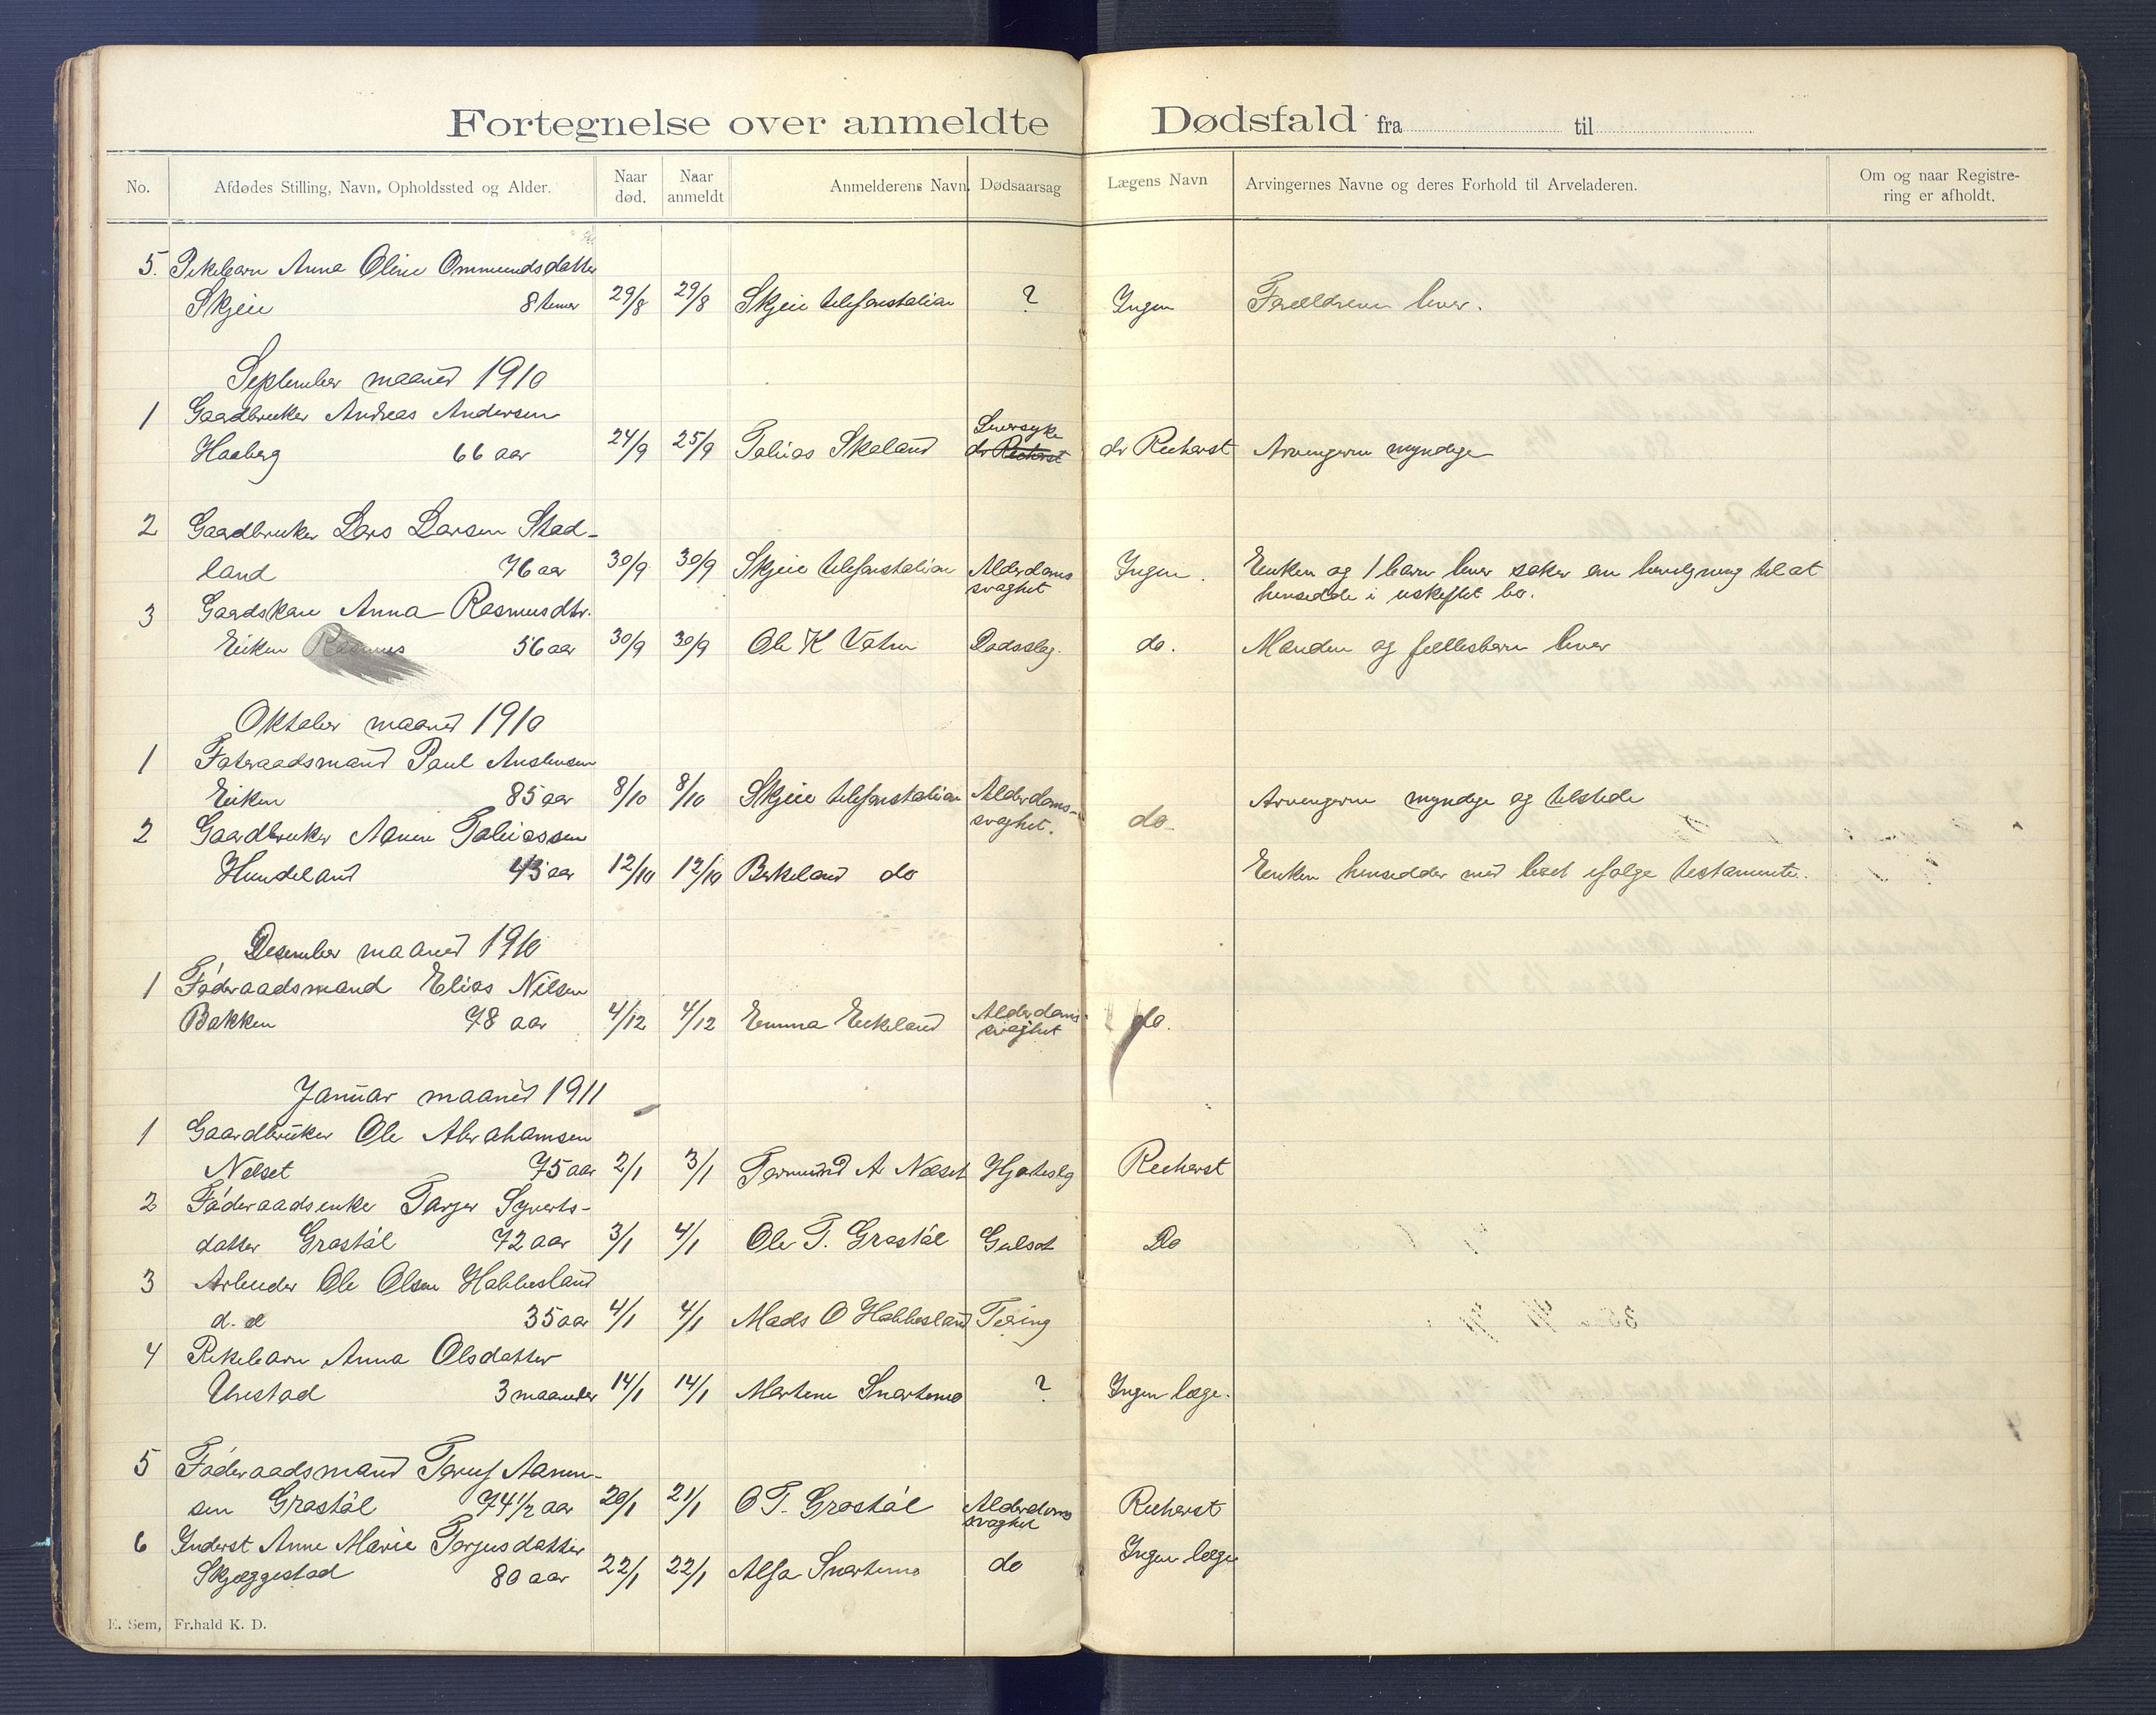 Fortegnelse over anmeldte Dødsfald fra til
No. Afdødes Stilling, Navn, Opholdssted og Alder. Naar død. Naar anmeldt Anmelderens Navn. Dødsaarsag Lægens Navn Arvingernes Navne og deres Forhold til Arveladeren. Om og naar Registrering er afholdt.
5. Pikebarn Anna Oline Ommundsdatter
Skjeie 8 timer 29/8 29/8 Skjeie telefonstation ? Ingen Forældrene lever.
September maaned 1910
1 Gaardbruker Andreas Andersen
Haaberg 66 aar 24/9 25/9 Tobias Skeland Leversyke dr Reehorst dr Reehorst Arvingerne myndige
2 Gaardbruker Lars Larsen Stad-
land 76 aar 30/9 30/9 Skjeie telefonstation Alderdoms svaghet Ingen. Enken og 1 barn lever søker om bevilgning til at
hensidde i uskiftet bo.
3 Gaardskone Anna Rasmusdtr.
Eiken Rasmus 56 aar 30/9 30/9 Ole K Vatne Dødsslag. do. Manden og fællesbarn lever
Oktober maaned 1910
1 Føderaadsmand Paul Anstensen
Eiken 85 aar 8/10 8/10 Skjeie telefonstation Alderdoms- svaghet. do. Arvingerne myndige og tilstede
2 Gaardbruker Aanen Tobiassen
Hundeland 43 aar 12/10 12/10 Birkeland do Enken hensidder med boet ifølge testamente.
Desember maaned 1910
1 Føderaadsmand Elias Nilsen
Bakken 78 aar 4/12 4/12 Emma Eikeland Alderdoms svaghet do.
Januar maaned 1911
1 Gaardbruker Ole Abrahamsen
Neset 75 aar 2/1 3/1 Tormund A. Neset Hjerteslag Reehorst
2 Føderaadsenke Torjer Syverts-
datter Grostøl 72 aar 3/1 4/1 Ole T. Grostøl Gulsot Do
3 Arbeider Ole Olsen Hobbesland
d. d 35 aar 4/1 4/1 Mads O Hobbesland Tæring
4 Pikebarn Anna Olsdatter
Urestad 3 maaneder 14/1 14/1 Martine Snartemo ? Ingen læge.
5 Føderaadsmand Tarjef Aanen-
sen Grostøl 74 1/2 aar 20/1 21/1 O T. Grostøl Alderdoms svaghet Reehorst
6 Inderst Anne Marie Torjusdatter
Skjeggestad 80 aar 22/1 22/1 Alfa Snartemo do Ingen læge
E. Sem, Fr.hald K. D.